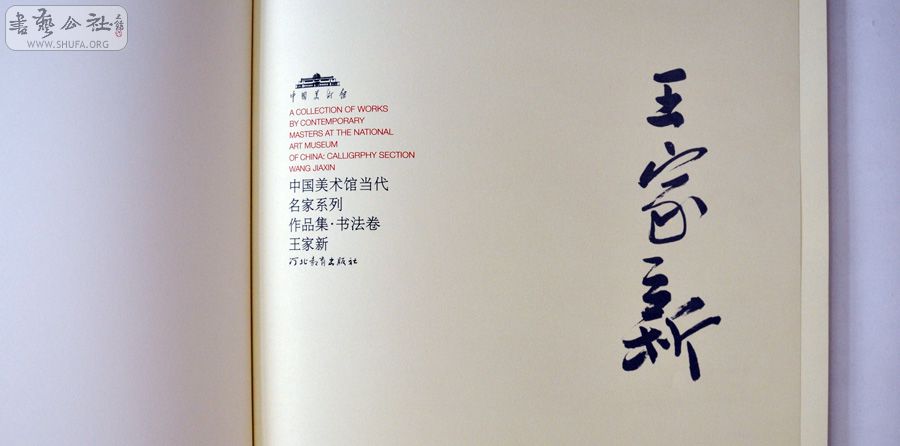 書藝公社
WWW.SHUFA.ORG
中国美术馆
A COLLECTION OF WORKS
BY CONTEMPORARY
MASTERS AT THE NATIONAL
ART MUSEUM
OF CHINA: CALLIGRPHY SECTION
WANG JIAXIN
中国美术馆当代
名家系列
作品集·书法卷
王家新
河北教育出版社
王家新